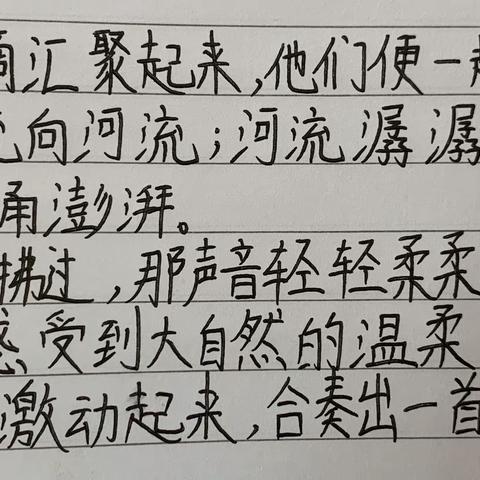 滴汇聚起来,他们便一起
向河流;河流潺潺
涌澎湃。
拂过,那声音轻轻柔柔
感受到大自然的温柔
激动起来,合奏出一首